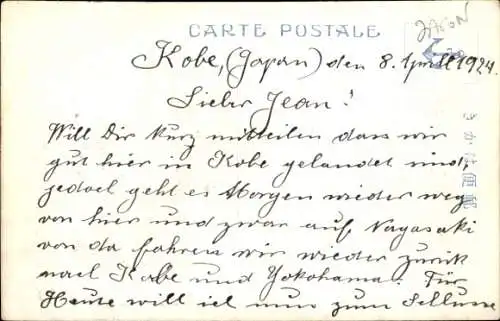 CARTE POSTALE
JAPON
Kobe, (Japan) den 8. April 1924
Lieber Jean!
Will Dir kurz mitteilen dass wir
gut hier in Kobe gelandet sind,
jedoch geht es Morgen wieder weg
von hier und zwar auf Nagasaki
von da fahren wir wieder zurük
nach Kobe und Yokohama. Für
Heute will ich nun zum Schlusse